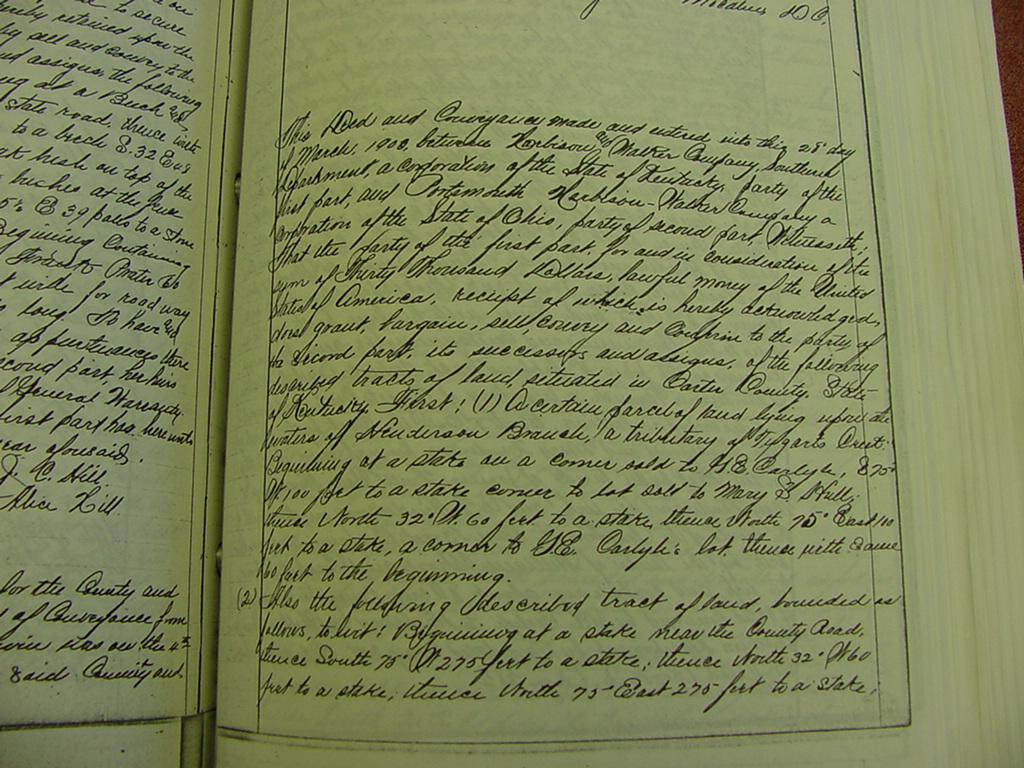 to secure
retained upon the
sell and convey to the
and assigns, the following
at a Beech and
state road, thence with
to a beech S. 32 E
bush on top of the
bushes at the
E 39 poles to a Stone
Beginning Containing
for road way
long To have and
appurtenances there
second part, her heirs
General Warranty.
first part has hereunto
year aforesaid.
C. Hill.
Alice Hill
for the County and
of Conveyance from
was on the 4th
said County and
D C.
This Deed and Conveyance made and entered into this 28" day
of March, 1900, between Harbison and Walker Company, Southern
Department, a corporation of the State of Kentucky, party of the
first part, and Portsmouth Harbison-Walker Company a
corporation of the State of Ohio, party of second part, Witnesseth;
That the party of the first part, for and in consideration of the
sum of Thirty Thousand Dollars, lawful money of the United
States of America, receipt of which is hereby acknowledged,
does grant, bargain, sell, convey and Confirm to the party of
the Second part, its successors and assigns, of the following
described tracts of land, situated in Carter County, State
of Kentucky. First: (1) A certain parcel of land lying upon the
waters of Henderson Branch, a tributary of Tygarts Creek:
Beginning at a stake on a corner sold to G.E. Carlyle, S 75°
W. 100 feet to a stake corner to lot sold to Mary S. Hull;
thence North 32° W. 60 feet to a stake, thence North 75° East 100
feet to a stake, a corner to G.E. Carlyle's lot, thence with same
60 feet to the beginning.
(2) Also the following described tract of land, bounded as
follows, to wit: Beginning at a stake near the County Road,
thence South 75° W 275 feet to a stake; thence North 32° W 60
feet to a stake; thence North 75° East 275 feet to a stake;